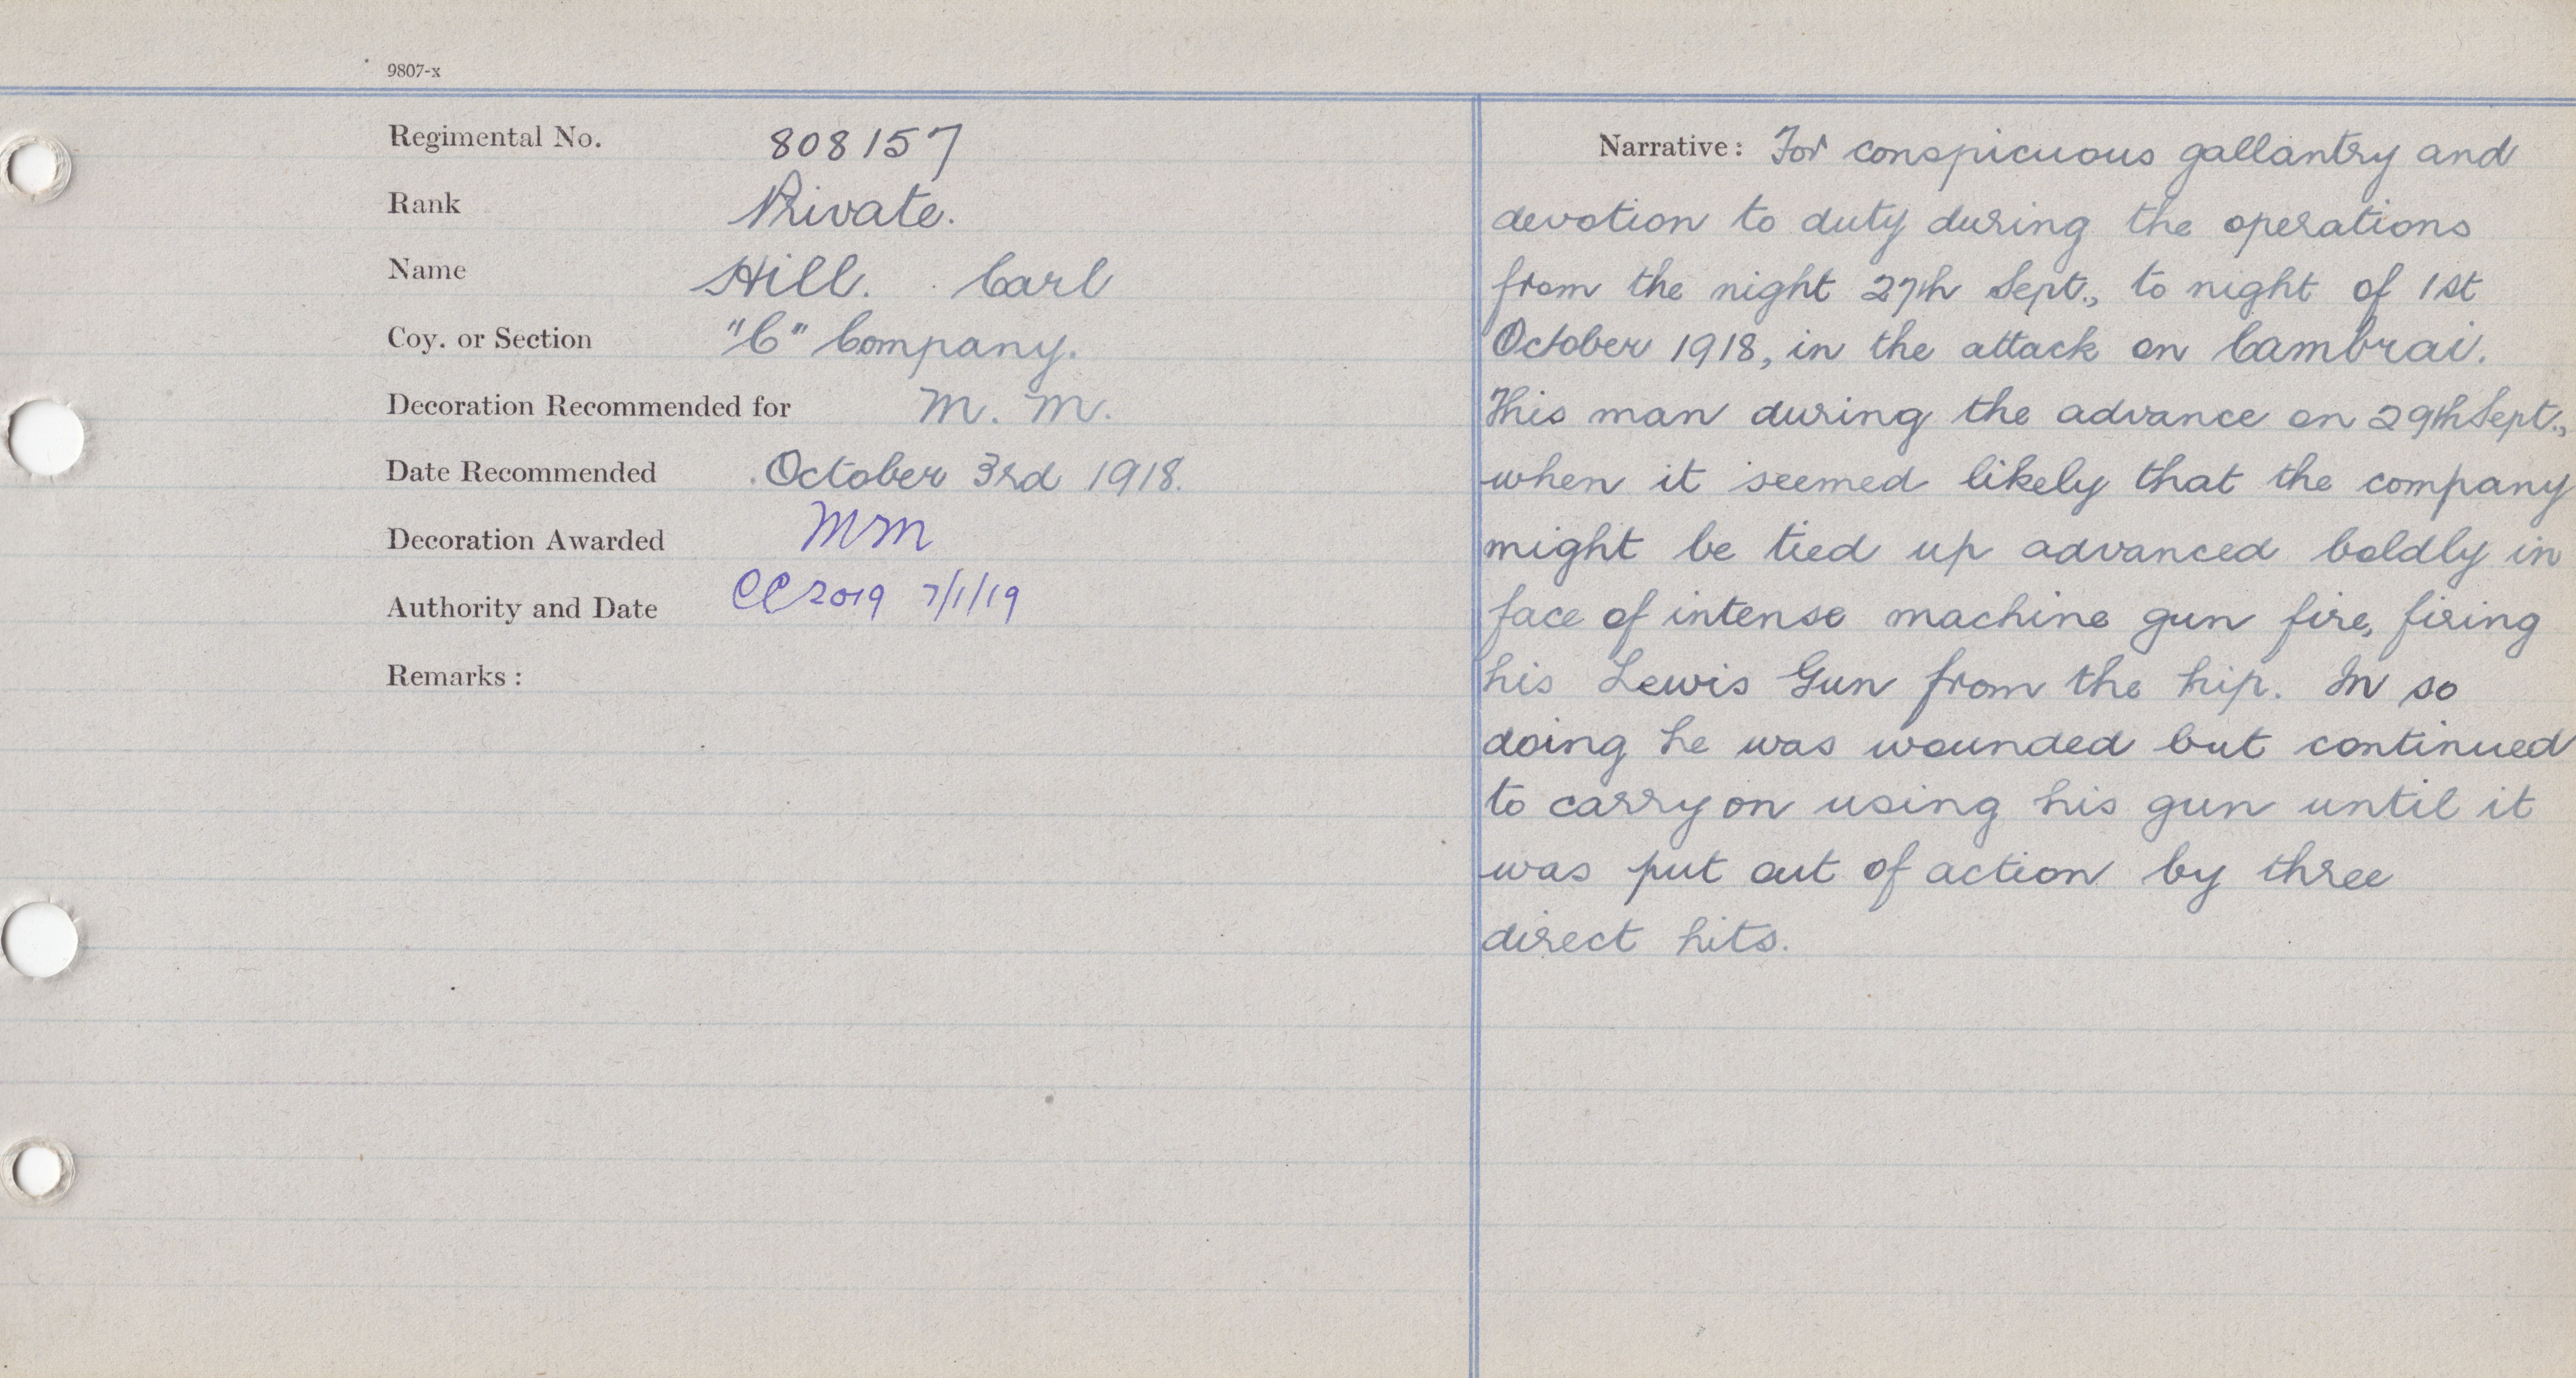 9807-x
Regimental No. 808157
Rank Private.
Name Hill. Carl
Coy. or Section "C" Company.
Decoration Recommended for M. M.
Date Recommended October 3rd 1918.
Decoration Awarded MM
Authority and Date CC2019 7/1/19
Remarks :
Narrative : For conspicuous gallantry and
devotion to duty during the operations
from the night 27th Sept., to night of 1st
October 1918, in the attack on Cambrai.
This man during the advance on 29th Sept.,
when it seemed likely that the company
might be tied up advanced boldly in
face of intense machine gun fire, firing
his Lewis Gun from the hip. In so
doing he was wounded but continued
to carry on using his gun until it
was put out of action by three
direct hits.